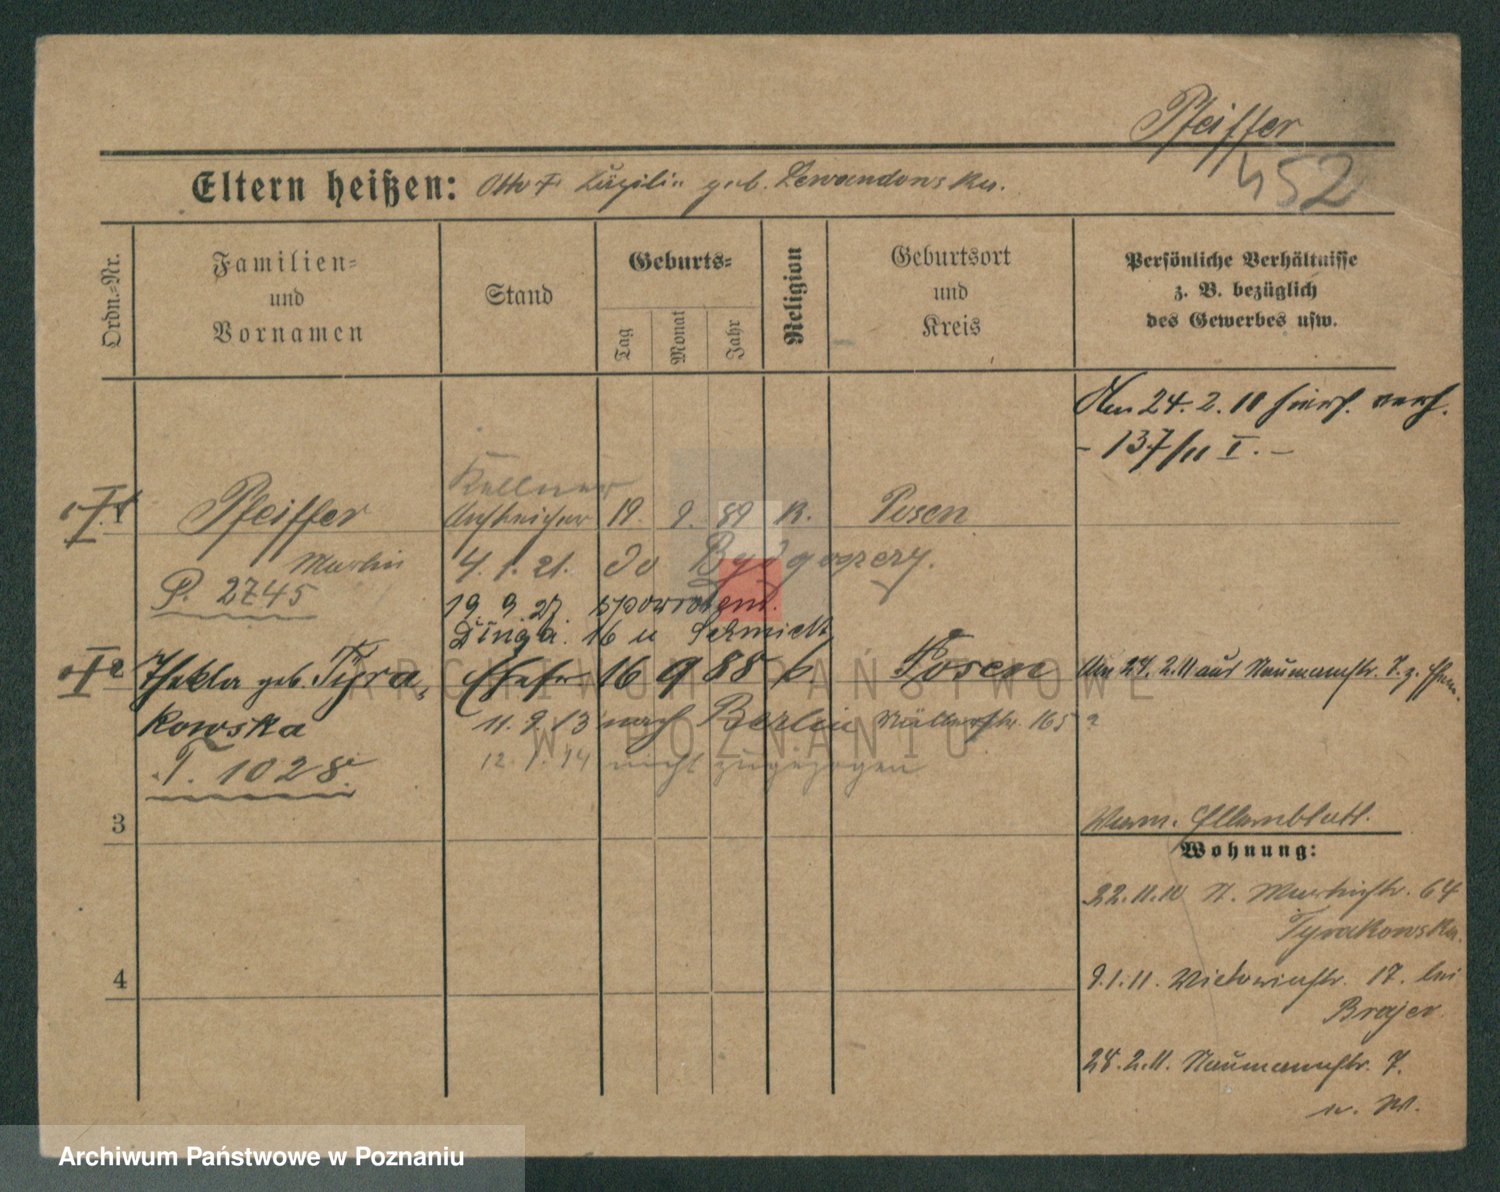 Pfeiffer
452
Eltern heißen: Otto + Cäzilie geb. Lewandowska.
Ordn.-Nr.
Familien-
und
Vornamen
Stand
Geburts-
Tag
Monat
Jahr
Religion
Geburtsort
und
Kreis
Persönliche Verhältnisse
z. B. bezüglich
des Gewerbes usw.
Am 24. 2. 11 hiers. verh.
- 137/11 I. -
Kellner
Pfeiffer Anstreicher 19. 9. 89 K. Posen
Martin 4. 1. 21. do Bydgoszczy.
P. 2745
19 9 27
16 u Schmidt
Thekla geb. Tyra- Ehefr. 16 9 88 k Posen Am 27. 2. 11 aus Naumannstr. 7. z. Ehem.
kowska 11. 9. 13 nach Berlin Müllerstr. 165 ?
T. 1028 12. 1. 14 nicht zugezogen
3
Verm. Elternblatt.
Wohnung:
22. 11. 10 St. Martinstr. 64
Tyrakowska.
4
9. 1. 11. Victoriastr. 17. bei
Brajer.
28. 2. 11. Naumannstr. 7.
u. W.
ARCHIWUM PAŃSTWOWE
W POZNANIU
Archiwum Państwowe w Poznaniu